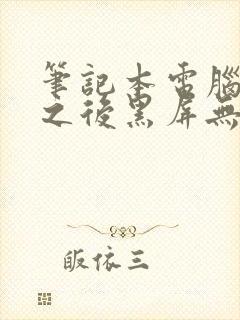 筆記本電腦
之後黑屏無
皈依三